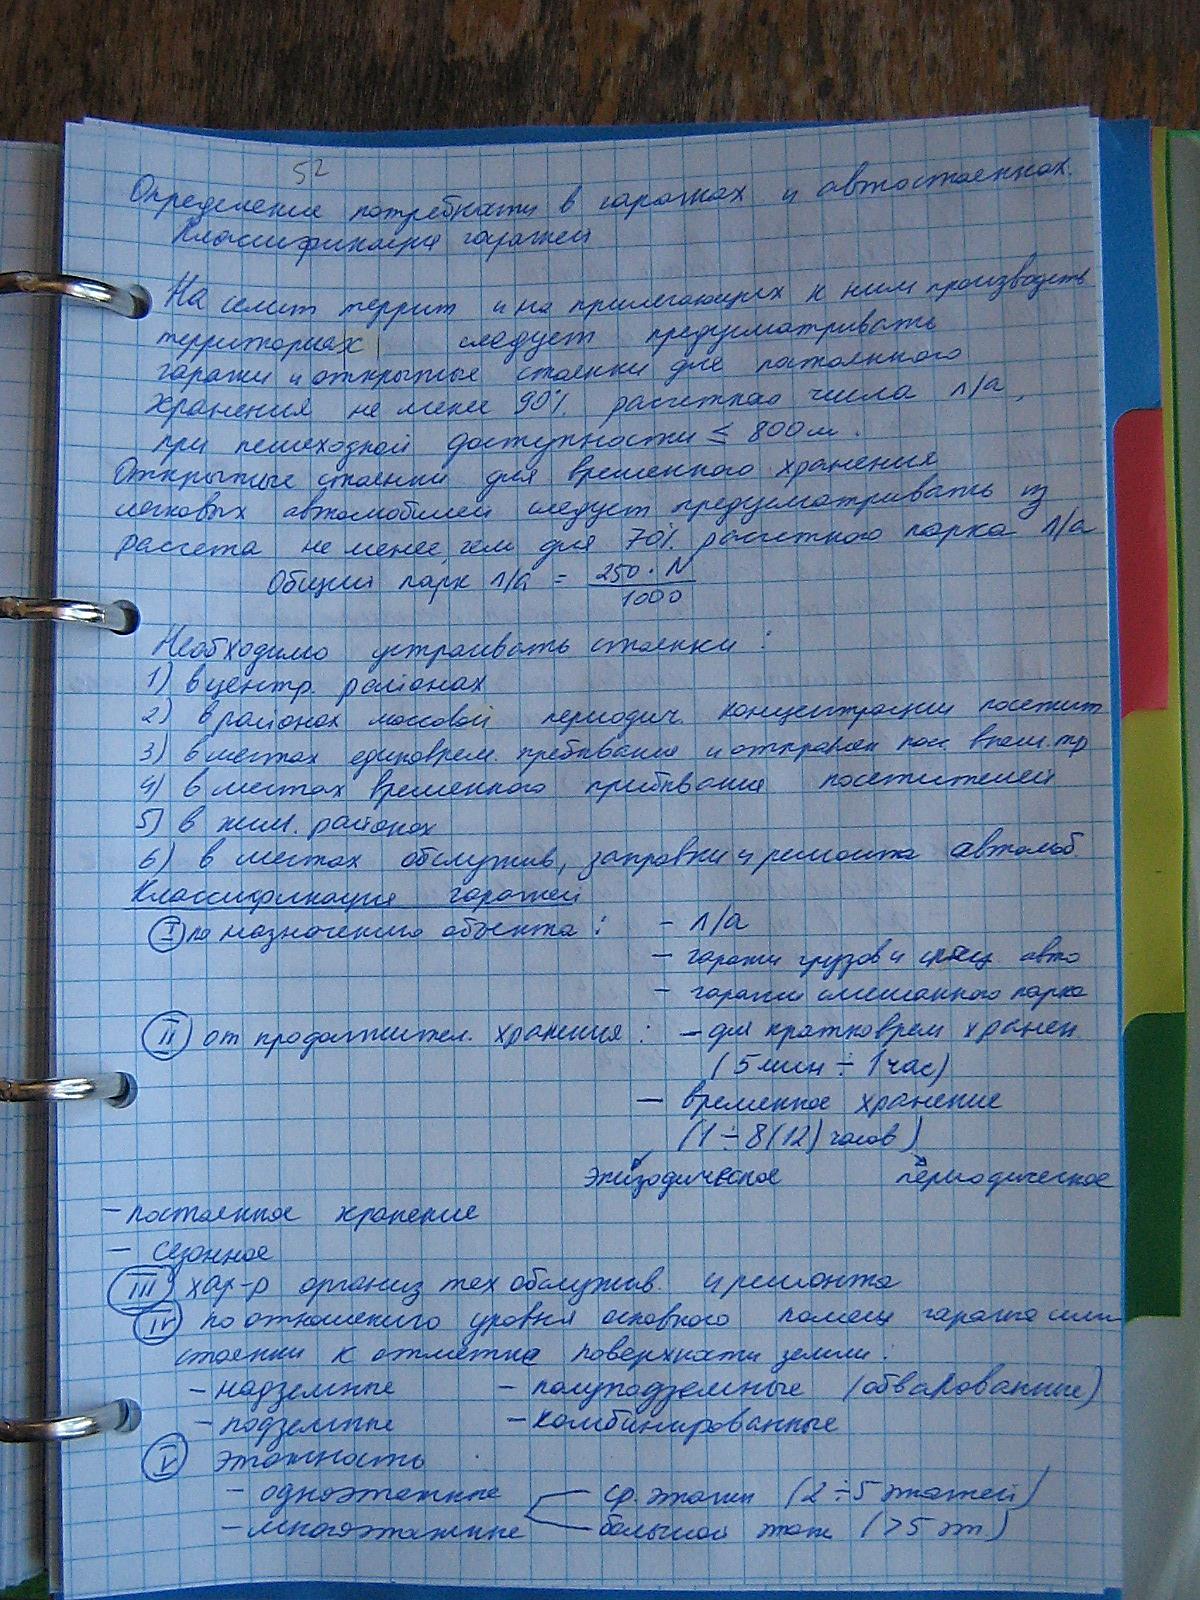 52
Определение потребности в гаражах и автостоянках.
Классификация гаражей
На селит террит и на прилегающих к ним производств
территориях следует предусматривать
гаражи и открытые стоянки для постоянного
хранения не менее 90% расчетного числа л/а,
при пешеходной доступности ≤ 800м.
Открытые стоянки для временного хранения
легковых автомобилей следует предусматривать из
рассчета не менее чем для 70% расчетного парка л/а
Общий парк л/а = 250 · N
1000
Необходимо устраивать стоянки:
1) в центр. районах
2) в районах массовой периодич. концентрации посетит
3) в местах единоврем. пребывания и отправлен
4) в местах временного прибывания посетителей
5) в жил. районах
6) в местах обслужив, заправки и ремонта автомоб.
Классификация гаражей
I по назначению объекта: - л/а
- гаражи грузов и спец авто
- гаражи смешанного парка
II от продолжител. хранения: - для кратковрем хранен.
(5 мин ÷ 1 час)
- временное хранение
(1 ÷ 8(12) часов)
эпизодическое периодическое
- постоянное хранение
- сезонное
III хар-р организ тех обслужив. и ремонта
IV по отношению уровня основного помещ гаража или
стоянки к отметке поверхности земли:
- надземные - полуподземные (обвалованные)
- подземные - комбинированные
V этажность
- одноэтажные ср. этажн (2 ÷ 5 этажей)
- многоэтажные большой этаж (>5 эт.)